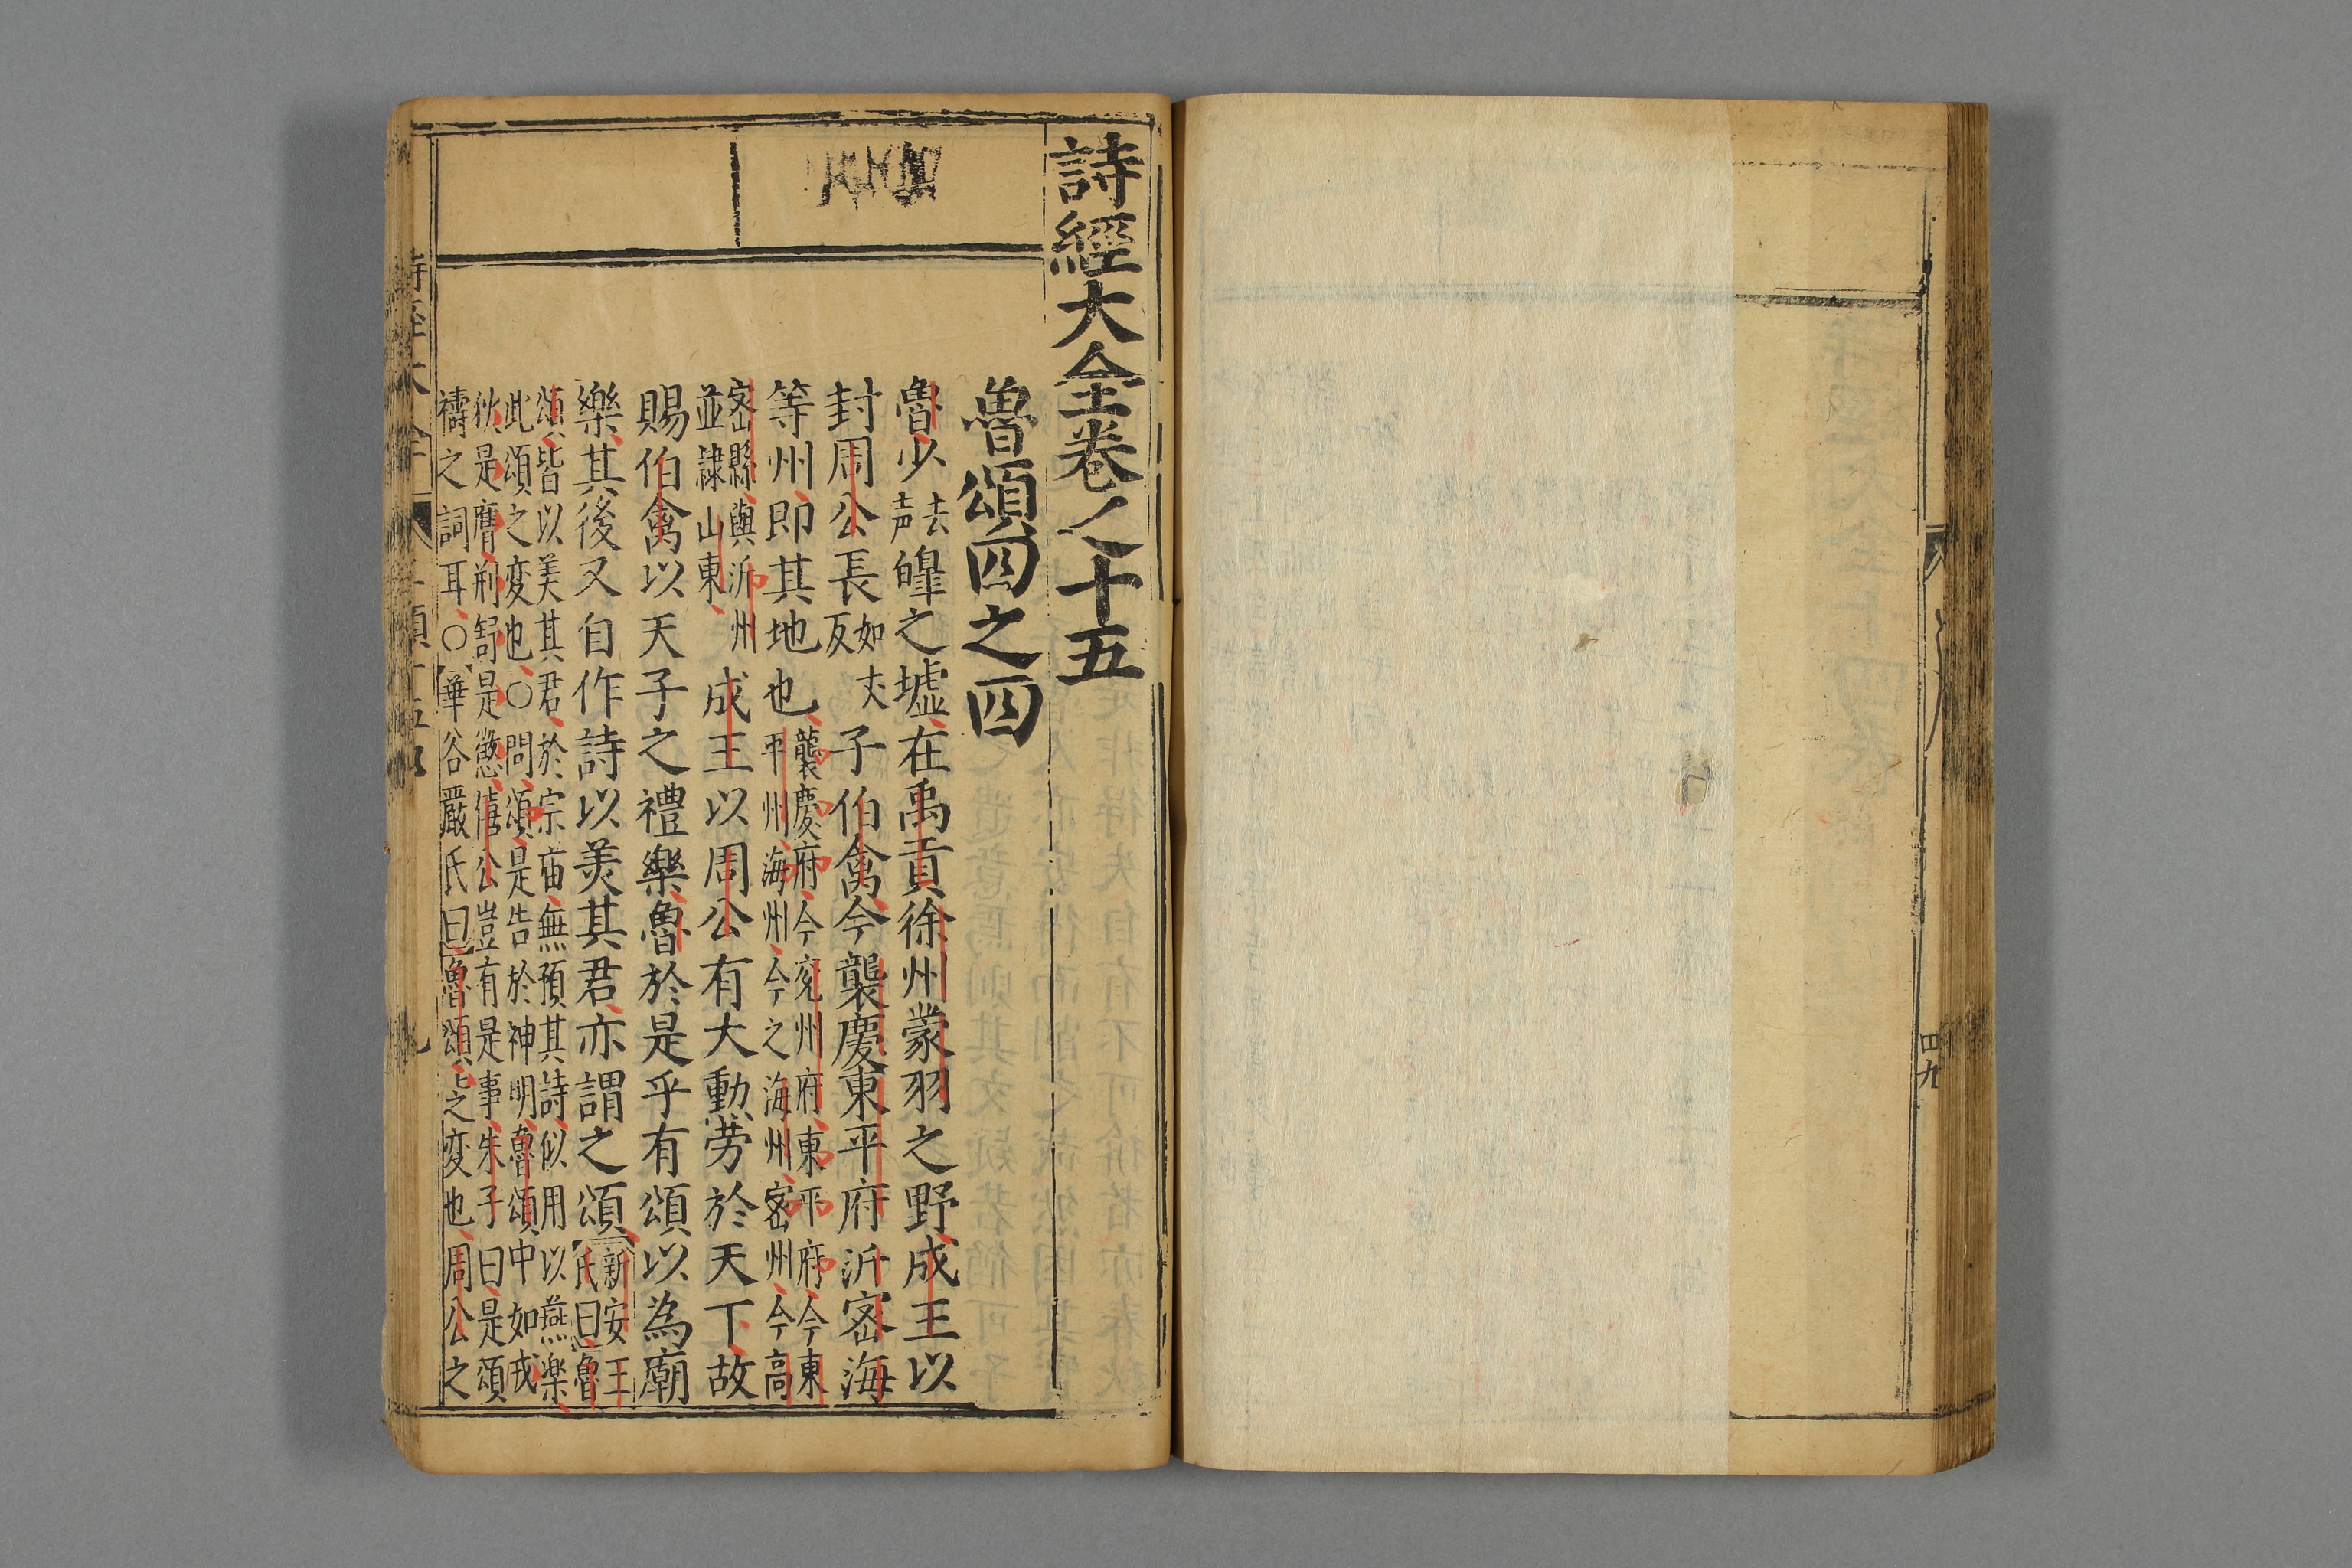 詩經大全卷之十五
魯頌四之四
魯少去声皥之墟在禹貢徐州蒙羽之野成王以
封周公長如夫反子伯禽今襲慶東平府沂密海
等州即其地也襲慶府今兖州府東平府今東
平州海州今之海州密州今高
密縣與沂州
並隷山東成王以周公有大勳劳於天下故
賜伯禽以天子之禮樂魯於是乎有頌以為廟
樂其後又自作詩以美其君亦謂之頌新安王
氏曰魯
頌皆以美其君於宗庙無預其詩似用以燕楽
此頌之変也○問頌是告於神明魯頌中如戎
狄是膺荆舒是懲僖公豈有是事朱子曰是頌
禱之詞耳○華谷嚴氏曰魯頌頌之変也周公之
四九